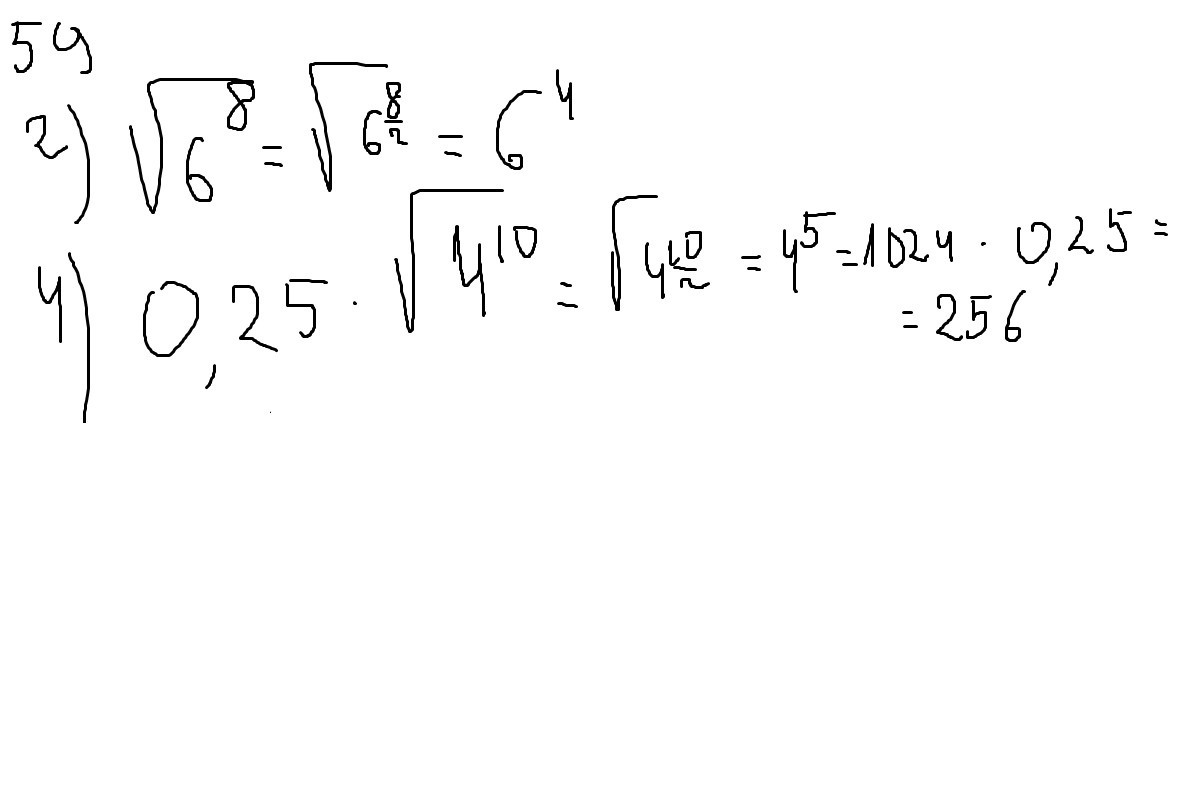 59
2) √6^8 = √6^(8/2) = 6^4
4) 0,25 · √4^10 = √4^(10/2) = 4^5 = 1024 · 0,25 =
= 256